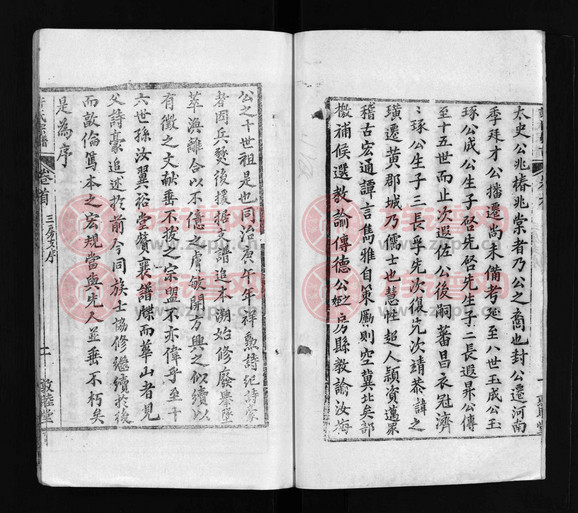 太史公兆椿兆棠者乃公之喬也封公遷河南
季珪才公播遷尚未備考延至八世玉成公玉
琢公成公生子啓先啓先生子二長辰遐暴公傳
至十五世而止次遐佐公後嗣蕃昌衣冠濟
琢公生子三長孚先次復先次靖恭諱之
璜遷黄郡城乃儒士也慧性超人穎資邁衆
稽古宏通譚言雋雅自策勵則空冀北矣部
檄補候選教諭傳德公房縣教諭汝梅
公之十世祖是也同治庚午年祥勲詩紀詩蒙
者因兵燹後援據支譜追本溯始修廢舉墜
萃渙離合以不億之膚敏開方興之似續以
有徵之文献垂不拔之宗盟不亦偉乎至十
六世孫汝翼裕堂贊襄譜牒而華山者見
父詩豪追述於前今同族士協修繼續於後
而敦倫篤本之宏規當與先人並垂不朽矣
是為序
卷首
三房支序
二
敦睦堂